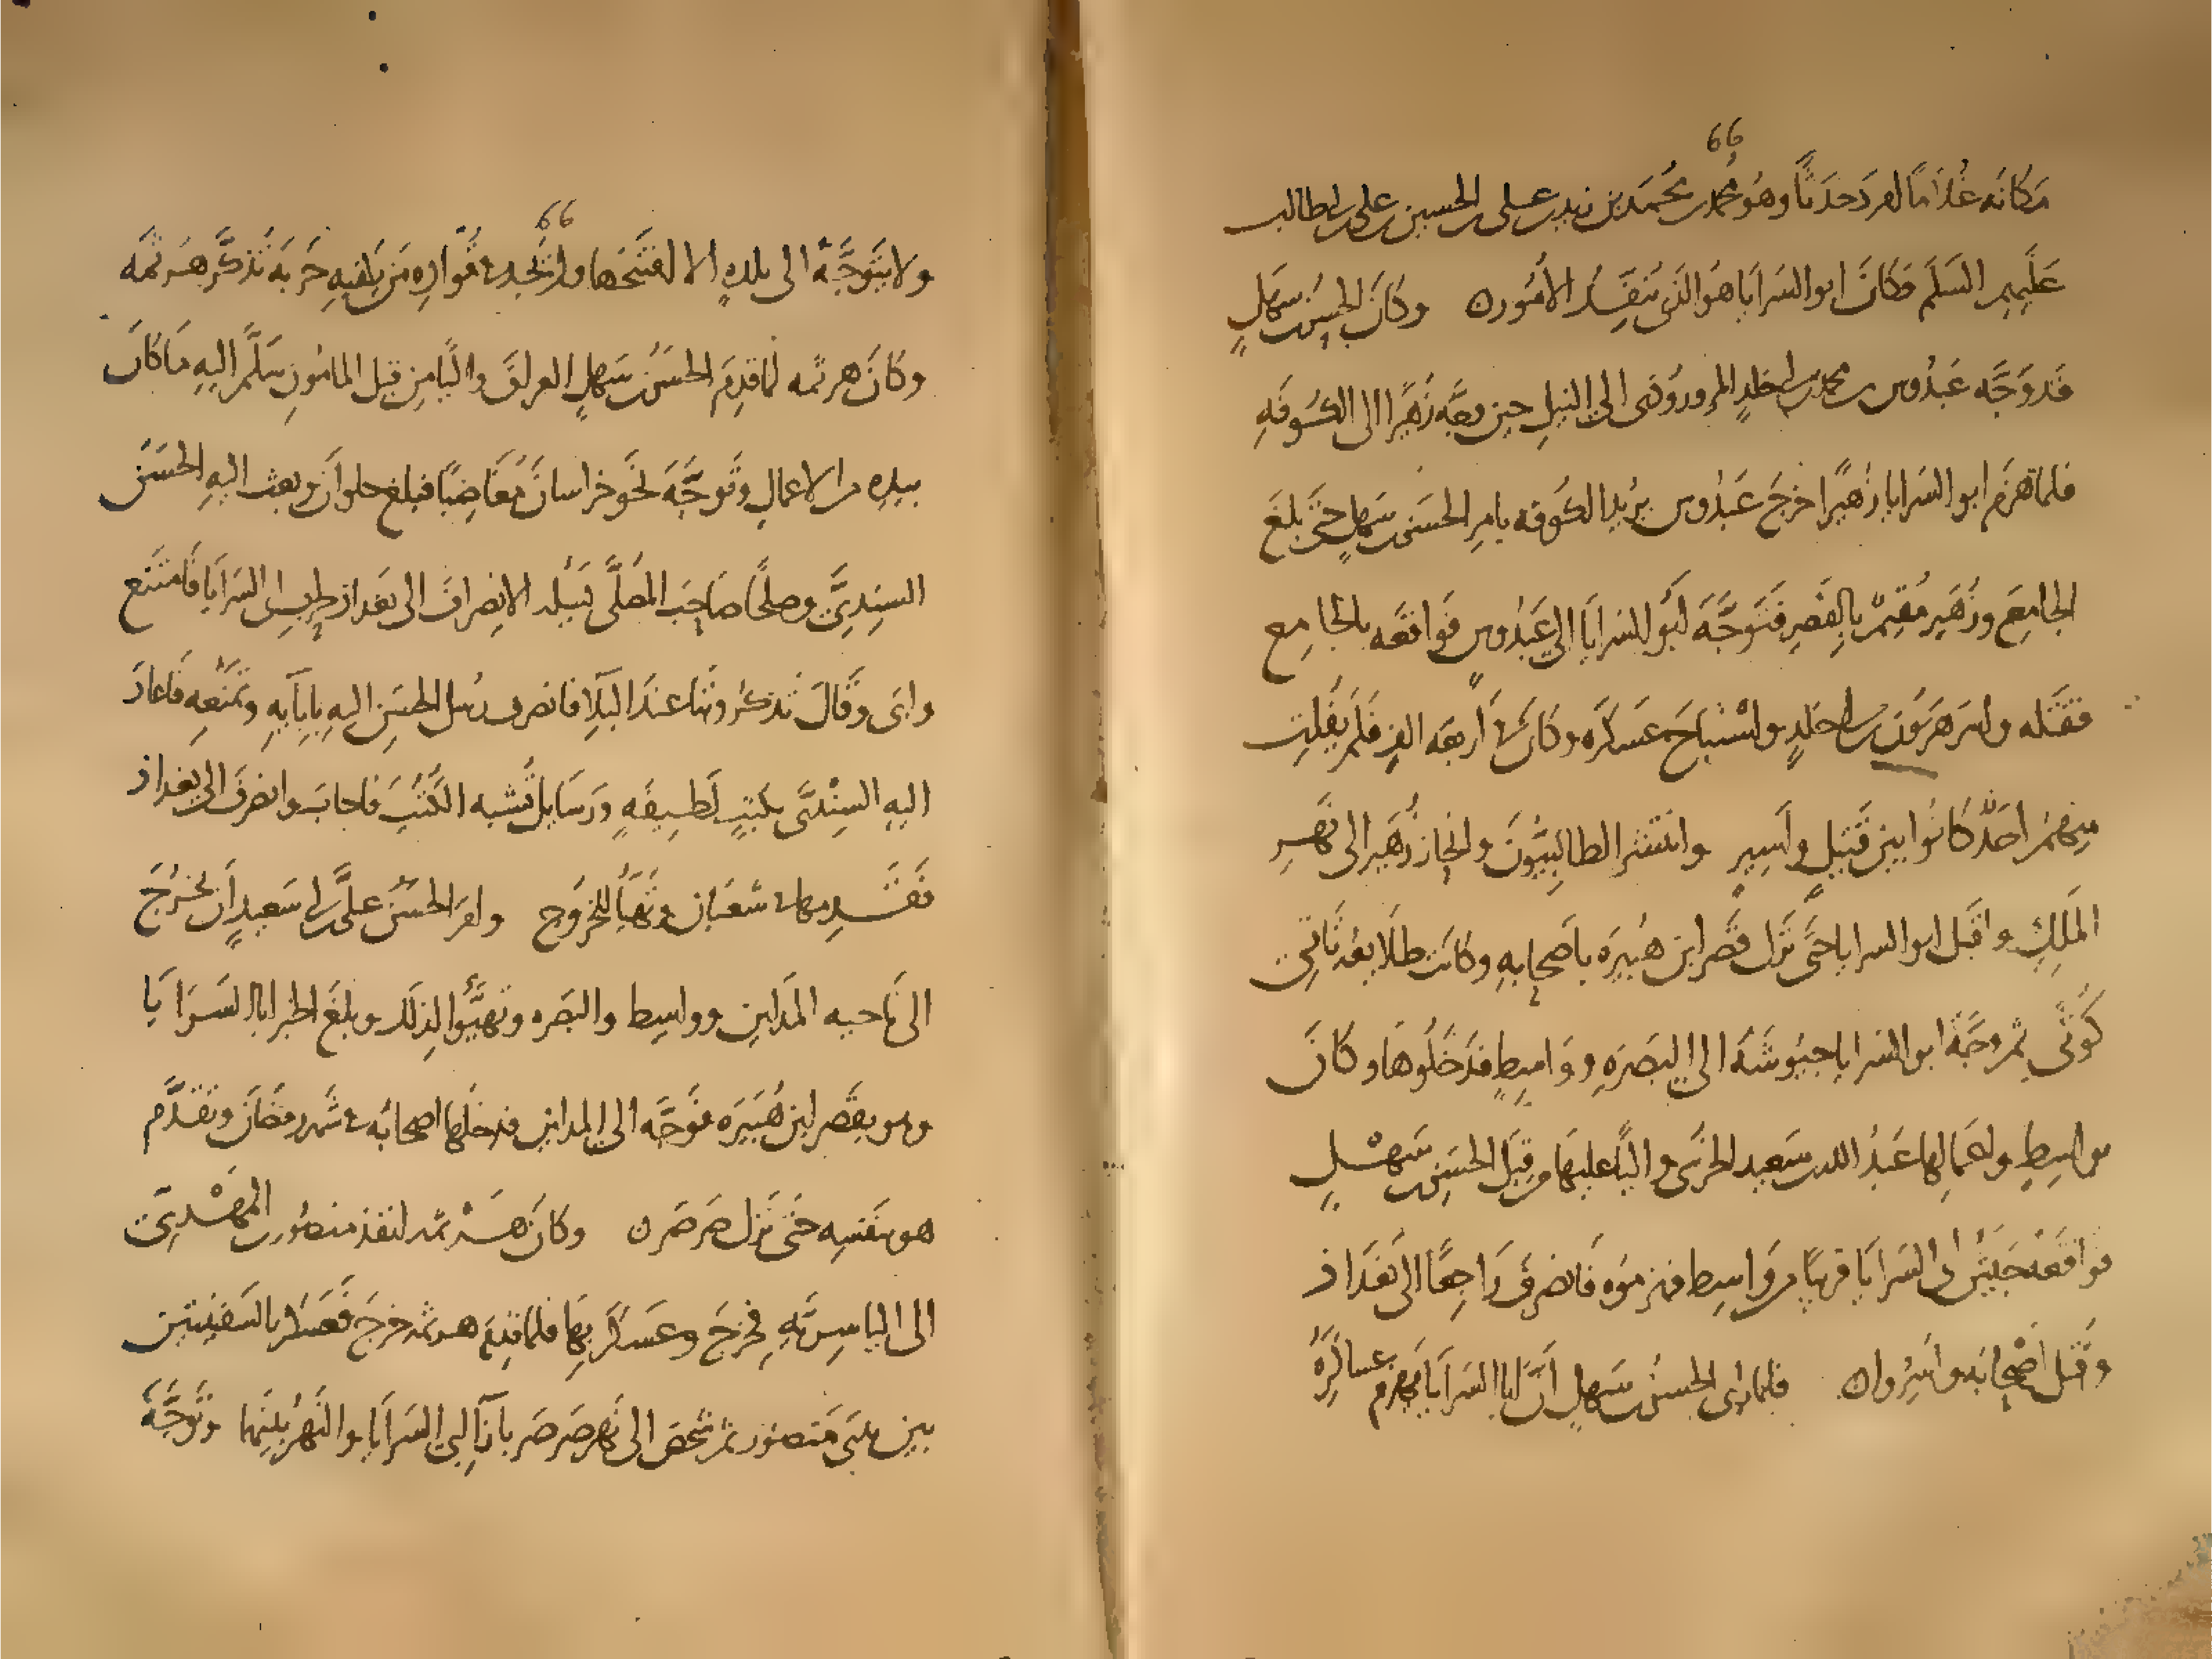 66
مكانه غلاما امرد حدثا وهو محمد بن محمد بن زيد بن على بن الحسين بن على بن ابى طالب
عليهم السلم فكان ابو السرايا هو الذى ينفذ الامور ه وكان الحسن بن سهل
قد وجه عبدوس بن محمد بن ابى خلد المروروذى الى النيل حين وجه زهيرا الى الكوفه
فلما هزم ابو السرايا زهيرا خرج عبدوس يريد الكوفه بامر الحسن بن سهل حتى بلغ
الجامع وزهير مقيم بالقصر فتوجه ابو السرايا الى عبدوس فواقعه بالجامع
فقتله واسر هرون بن ابى خلد واستباح عسكره وكان فى اربعه الف فلم يفلت
منهم احد كانوا بين قتيل واسير وانتشر الطالبيون وانحاز زهير الى نهر
الملك واقبل ابو السرايا حتى نزل قصر ابن هبيره باصحابه وكانت طلايعه تاتى
كوثى ثم وجه ابو السرايا جيوشه الى البصره وواسط فدخلوها وكان
بواسط واعمالها عبد الله بن سعيد الحرشى واليا عليها من قبل الحسن بن سهل
فواقعه جيش ابى السرايا قريبا من واسط فهزموه فانصرف راجعا الى بغداذ
وقتل اصحابه واسروا ه فلما راى الحسن بن سهل ان ابا السرايا يهزم عساكره
66
ولا يتوجه الى بلده الا افتتحها ولم يجد فى قواده من يكفيه حربه تذكر هرثمه
وكان هرثمه لما قدم الحسن بن سهل العراق واليا من قبل المامون سلم اليه ما كان
بيده من الاعمال وتوجه نحو خراسان مغاضبا فبلغ حلوان وبعث اليه الحسن
السندى وصلحا صاحب المصلى يسله الانصراف الى بغداذ لحرب ابى السرايا فامتنع
وابى وقال فانصرف رسل الحسن اليه بابايه وتمنعه فاعاد
اليه السندى بكتب لطيفه ورسايل تشبه الكتب فاجاب وانصرف الى بغداذ
فقدمها فى شعبان وتهيا للخروج وامر الحسن على بن ابى سعيد ان يخرج
الى ناحيه المداين وواسط والبصره وتهيوا لذلك وبلغ الخبر ابا السرايا
وهو بقصر ابن هبيره فوجه الى المداين فدخلها اصحابه فى شهر رمضان وتقدم
هو بنفسه حتى نزل صرصر ه وكان هرثمه انفذ منصور بن المهدى
الى الياسريه فخرج وعسكر بها فلما قدم هرثمه خرج فعسكر بالسفينتين
بين يدى منصور ثم شخص الى نهر صرصر بازا ابى السرايا والنهر بينهما وتوجه